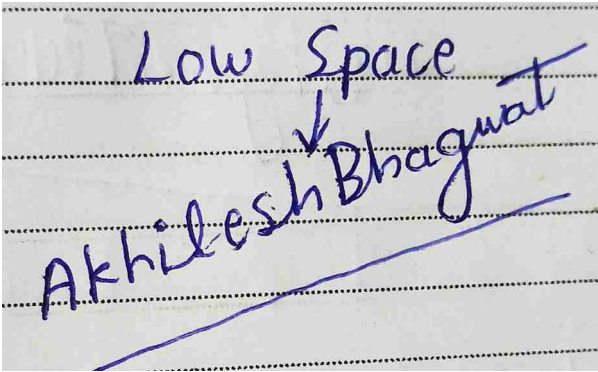 Low Space
AkhileshBhagwat